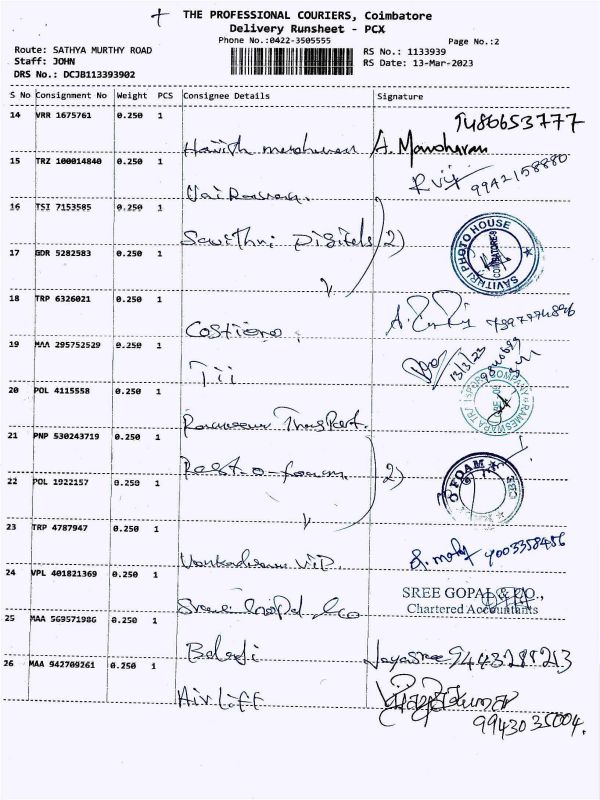 THE PROFESSIONAL COURIERS, Coimbatore
Delivery Runsheet - PCX
Phone No.:0422-3505555
Page No.:2
Route: SATHYA MURTHY ROAD
RS No.: 1133939
Staff: JOHN
RS Date: 13-Mar-2023
DRS No.: DCJB113393902
S No Consignment No Weight PCS Consignee Details Signature
14 VRR 1675761 0.250 1
A. Manoharan
15 TRZ 100014840 0.250 1
9942158880
16 TSI 7153585 0.250 1
Savithri Digitels 2)
SAVITHRI PHOTO HOUSE
COIMBATORE
17 GDR 5282583 0.250 1
18 TRP 6326021 0.250 1
19 MAA 295752529 0.250 1
13/3/23
Tii
20 POL 4115558 0.250 1
21 PNP 530243719 0.250 1
2)
FOAM
CBE
22 POL 1922157 0.250 1
23 TRP 4787947 0.250 1
9003358456
24 VPL 401821369 0.250 1
SREE GOPAL & CO.,
Chartered Accountants
Sree Gopal &co
25 MAA 569571986 0.250 1
Balaji Jayasree 9443288213
26 MAA 942709261 0.250 1
Air Liff
9943035004.